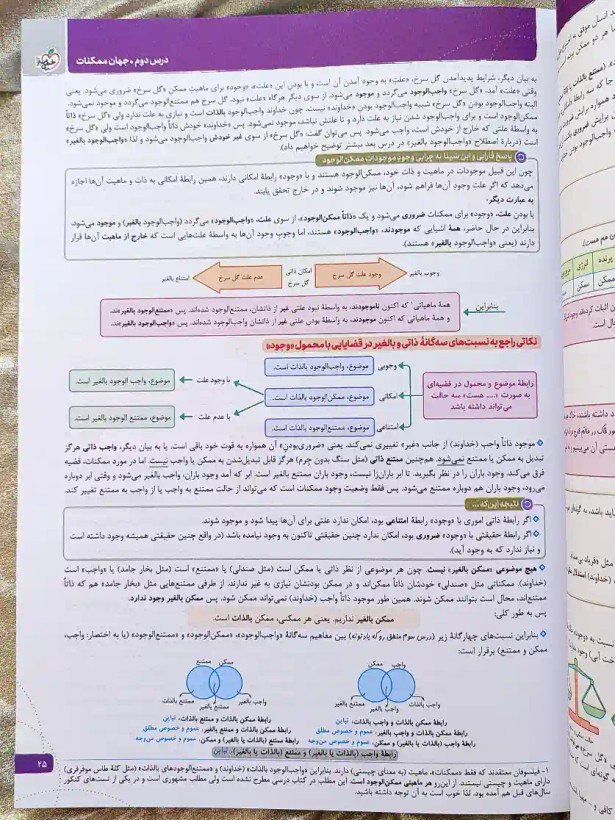 درس دوم • جهان ممکنات
به بیان دیگر، شرایط پدیدآمدن گل سرخ، «علت» به وجود آمدن آن است و با بودن این «علت»، «وجود» برای ماهیتِ ممکن «گل سرخ» ضروری می‌شود. یعنی
وقتی «علت» آمد، «گل سرخ» واجب‌الوجود می‌گردد و موجود می‌شود. از سوی دیگر هرگاه «علت» نبود، گل سرخ هم ممتنع‌الوجود می‌گردد و موجود نمی‌شود.
البته واجب‌الوجود بودن «گل سرخ» شبیه واجب‌الوجود بودن «خداوند» نیست. چون خداوند واجب‌الوجود بالذات است و نیازی به علت ندارد ولی «گل سرخ» ذاتاً
ممکن‌الوجود است و برای واجب‌الوجود شدن نیاز به علت دارد و تا علتش نباشد، موجود نمی‌شود. پس «خداوند» خودش ذاتاً واجب‌الوجود است ولی «گل سرخ»
به واسطهٔ علتی که خارج از خودش است، واجب می‌شود. پس می‌توان گفت: «گل سرخ» از سوی غیر خودش واجب‌الوجود می‌شود و لذا «واجب‌الوجود بالغیر»
است (دربارهٔ اصطلاح «واجب‌الوجود بالغیر» در درس بعد بیشتر توضیح خواهیم داد).
پاسخ فارابی و ابن سینا به چرایی وجودِ موجودات ممکن‌الوجود
چون این قبیل موجودات در ماهیت و ذات خود، ممکن‌الوجود هستند و با «وجود» رابطهٔ امکانی دارند، همین رابطهٔ امکانی به ذات و ماهیت آن‌ها اجازه
می‌دهد که اگر علتِ وجودِ آن‌ها فراهم شود، آن‌ها نیز موجود شوند و در خارج تحقق یابند.
به عبارت دیگر:
با بودنِ علت، «وجود» برای ممکنات ضروری می‌شود و یک «ذاتاً ممکن‌الوجود»، از سوی علت، «واجب‌الوجود» می‌گردد (واجب‌الوجود بالغیر) و موجود می‌شود.
بنابراین در حال حاضر، همهٔ اشیایی که موجودند، «واجب‌الوجود» هستند، اما وجوبِ وجودِ آن‌ها به واسطهٔ علت‌هایی است که خارج از ماهیت آن‌ها قرار
دارند (یعنی «واجب‌الوجود بالغیر» هستند).
وجوب بالغیر
وجود علت گل سرخ
امکان ذاتی گل سرخ
عدم علت گل سرخ
امتناع بالغیر
بنابراین
همهٔ ماهیاتی۱ که اکنون ناموجودند، به واسطهٔ نبود علتی غیر از ذاتشان، ممتنع‌الوجود شده‌اند. پس «ممتنع‌الوجود بالغیر»ند.
و همهٔ ماهیاتی که اکنون موجودند، به واسطهٔ بودن علتی غیر از ذاتشان واجب‌الوجود شده‌اند. پس «واجب‌الوجود بالغیر»ند.
نکاتی راجع به نسبت‌های سه‌گانهٔ ذاتی و بالغیر در قضایایی با محمول «وجود»
رابطهٔ موضوع و محمول در قضیه‌ای
به صورت «.... هست» سه حالت
می‌تواند داشته باشد
وجوبی
موضوع، واجب‌الوجود بالذات است.
امکانی
موضوع، ممکن‌الوجود بالذات است.
امتناعی
موضوع، ممتنع‌الوجود بالذات است.
با وجود علت
موضوع، واجب الوجود بالغیر است.
با عدم علت
موضوع، ممتنع الوجود بالغیر است.
موجود ذاتاً واجب (خداوند) از جانب «غیر» تغییری نمی‌کند، یعنی «ضروری‌بودن» آن همواره به قوت خود باقی است. یا به بیان دیگر، واجب ذاتی هرگز
تبدیل به ممکن یا ممتنع نمی‌شود. همچنین ممتنع ذاتی (مثل سنگ بدون جِرم) هرگز قابل تبدیل‌شدن به ممکن یا واجب نیست. اما در مورد ممکنات، قضیه
فرق می‌کند. وجود باران را در نظر بگیرید. تا ابر باران‌زا نیست، وجود باران ممتنع بالغیر است. ابر که آمد وجود باران، واجب بالغیر می‌شود و وقتی ابر دوباره
می‌رود، وجود باران هم دوباره ممتنع می‌شود. پس فقط وضعیت وجود ممکنات است که می‌تواند از حالت ممتنع به واجب یا از واجب به ممتنع تغییر کند.
نتیجه این‌که ...
اگر رابطهٔ ذاتی اموری با «وجود» رابطهٔ امتناعی بود، امکان ندارد علتی برای آن‌ها پیدا شود و موجود شوند.
اگر رابطهٔ حقیقتی با «وجود» ضروری بود، امکان ندارد چنین حقیقتی تاکنون به وجود نیامده باشد (در واقع چنین حقیقتی همیشه وجود داشته است
و نیاز ندارد که به وجود آید).
هیچ موضوعی «ممکن بالغیر» نیست. چون هر موضوعی از نظر ذاتی یا ممکن است (مثل صندلی) یا «ممتنع» است (مثل بخار جامد) یا «واجب» است
(خداوند). ممکناتی مثل «صندلی» خودشان ذاتاً ممکن‌اند و در ممکن بودنشان نیازی به غیر ندارند. از طرفی ممتنع‌هایی مثل «بخار جامد» هم که ذاتاً
ممتنع‌اند، محال است بتوانند ممکن شوند. همین طور موجود ذاتاً واجب (خداوند) نمی‌تواند ممکن شود. پس ممکن بالغیر وجود ندارد.
پس به طور کلی:
ممکن بالغیر نداریم. یعنی هر ممکنی، ممکن بالذات است.
بنابراین نسبت‌های چهارگانهٔ زیر (درس سوم منطق رو که یادتونه) بین مفاهیم سه‌گانهٔ «واجب‌الوجود»، «ممکن‌الوجود» و «ممتنع‌الوجود» (یا به اختصار: واجب،
ممکن و ممتنع) برقرار است:
واجب
ممکن
واجب بالذات
واجب بالغیر
ممتنع بالغیر
ممکن
ممتنع
واجب بالغیر
ممتنع بالغیر
ممتنع بالذات
رابطهٔ ممکن بالذات و واجب بالذات، تباین
رابطهٔ ممکن بالذات و واجب بالغیر، عموم و خصوص مطلق
رابطهٔ واجب (بالذات یا بالغیر) و ممکن: عموم و خصوص من‌وجه
رابطهٔ ممکن بالذات و ممتنع بالذات، تباین
رابطهٔ ممکن بالذات و ممتنع بالغیر، عموم و خصوص مطلق
رابطهٔ ممتنع (بالذات یا بالغیر) و ممکن، عموم و خصوص من‌وجه
رابطهٔ واجب (بالذات یا بالغیر) و ممتنع (بالذات یا بالغیر)، تباین
۱- فیلسوفان معتقدند که فقط «ممکنات»، ماهیت (به معنای چیستی) دارند. بنابراین «واجب‌الوجود بالذات» (خداوند) و «ممتنع‌الوجودهای بالذات» (مثل کلهٔ طاس موفرفری)
دارای ماهیت و چیستی نیستند. از این‌رو هر ماهیتی ممکن‌الوجود است. این مطلب در کتاب درسی مطرح نشده است ولی مطلب مشهوری است و در یکی از تست‌های کنکور
سال‌های قبل هم آمده بود. لذا خوب است به آن توجه داشته باشید.
۲۵